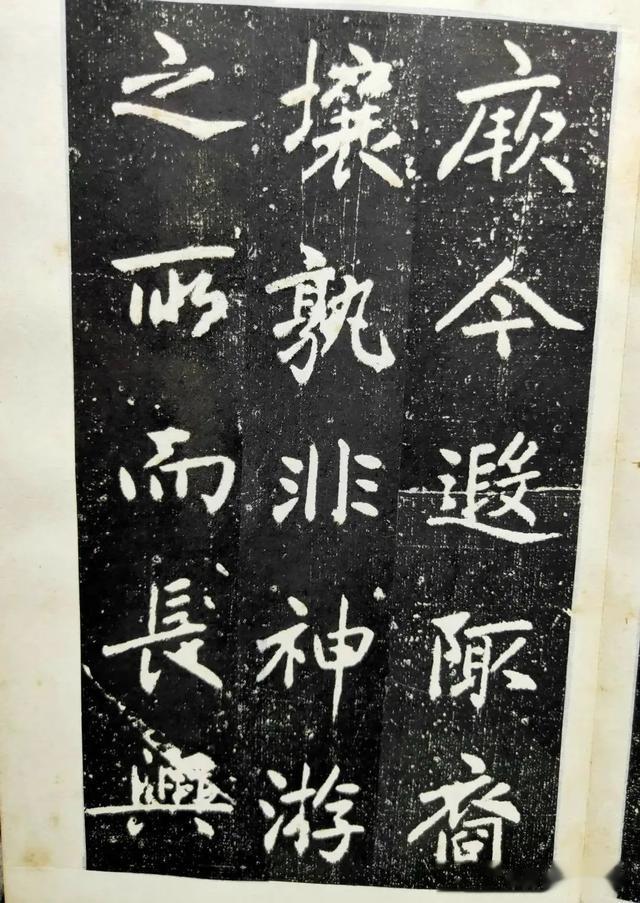 厥今遐陬裔
壤孰非神游
之所而長興